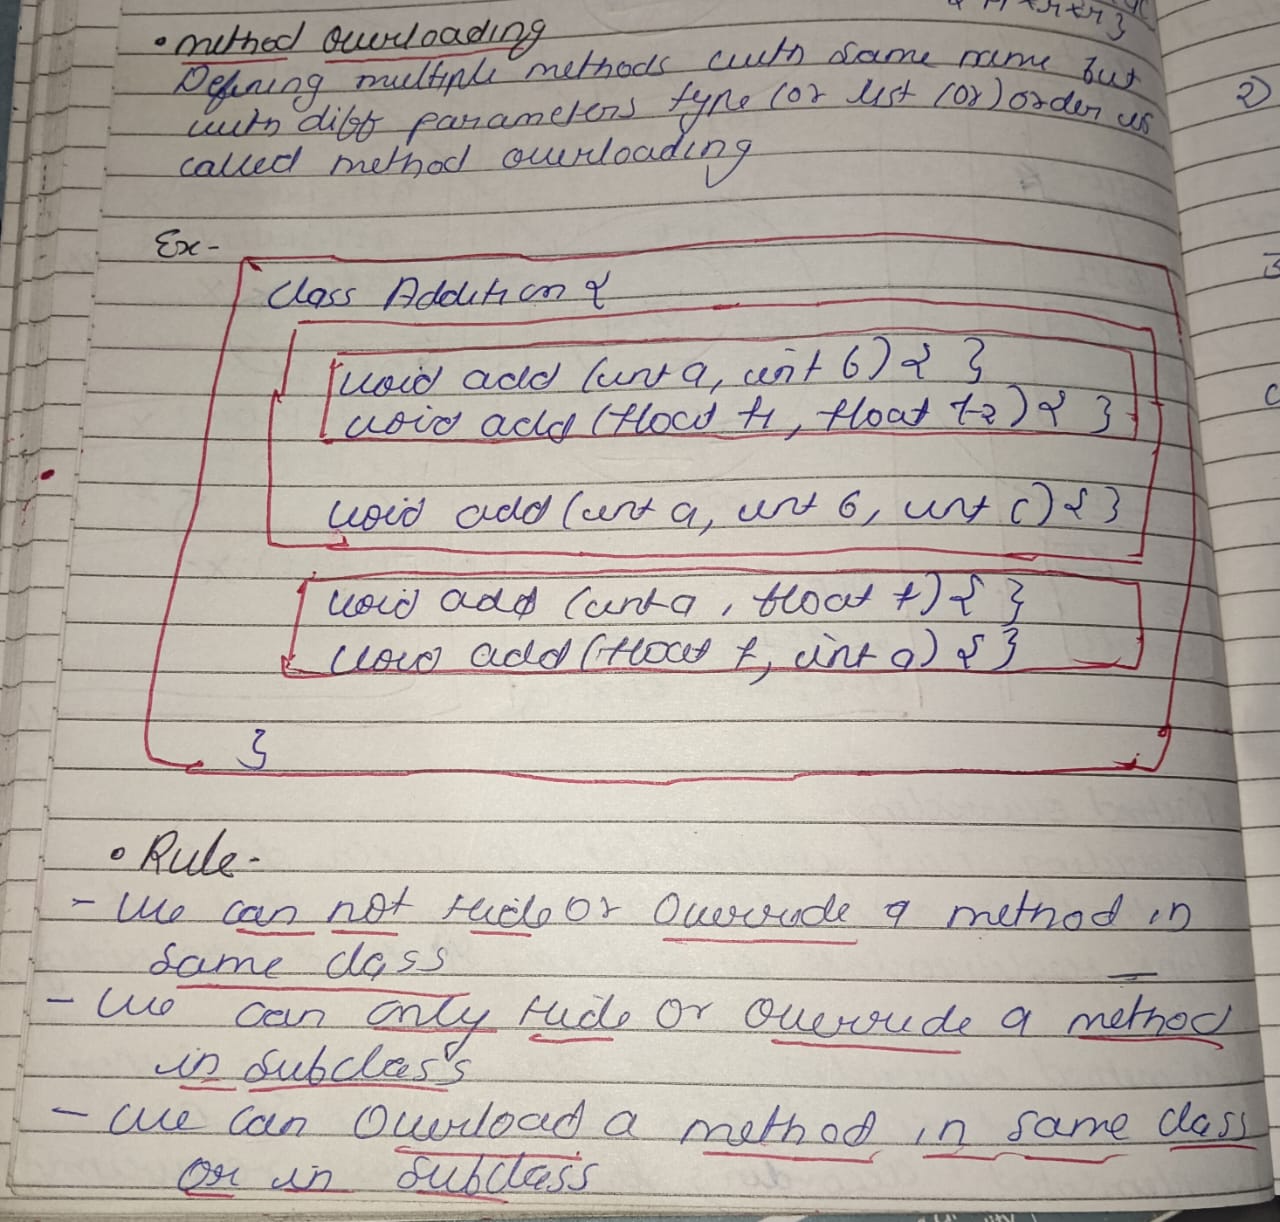 • method overloading
Defining multiple methods with same name but
with diff parameters type (or list (or) order is
called method overloading
2)
Ex-
class Addition {
void add (int a, int b) { }
void add (float f1, float f2) { }
void add (int a, int b, int c) { }
void add (int a, float f) { }
void add (float f, int a) { }
}
• Rule-
- we can not hide or override a method in
same class
- we can only hide or override a method
in subclass
- we can overload a method in same class
or in subclass